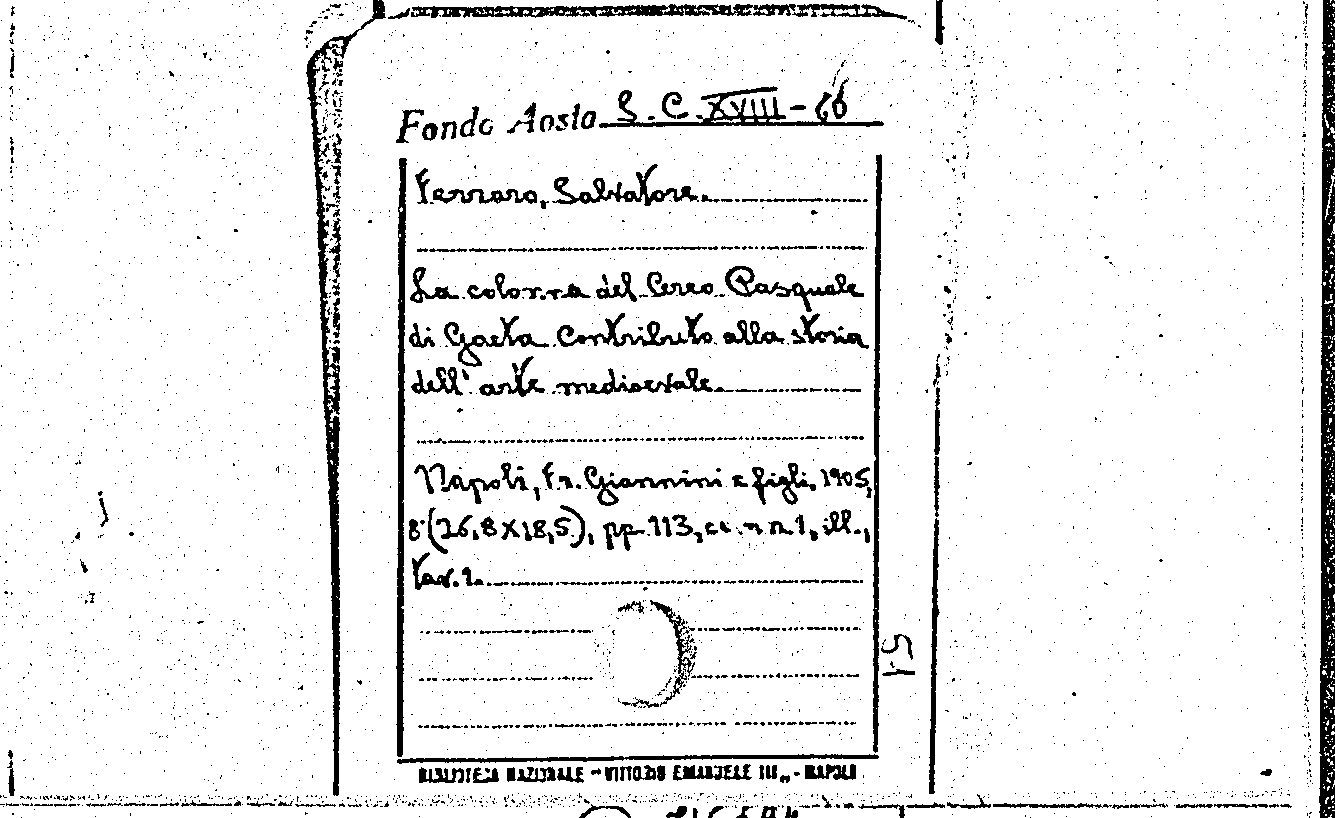 Fondo Aosta S. C. XVIII - 66
Ferraro, Salvatore.
La colonna del Cereo Pasquale
di Gaeta. Contributo alla storia
dell'arte medioevale.
Napoli, Fr. Giannini e figli, 1905,
8° (26,8 X 18,5), pp. 113, cc. n n. 1, ill.,
tav. 1.
51
BIBLIOTECA NAZIONALE "VITTORIO EMANUELE III" - NAPOLI